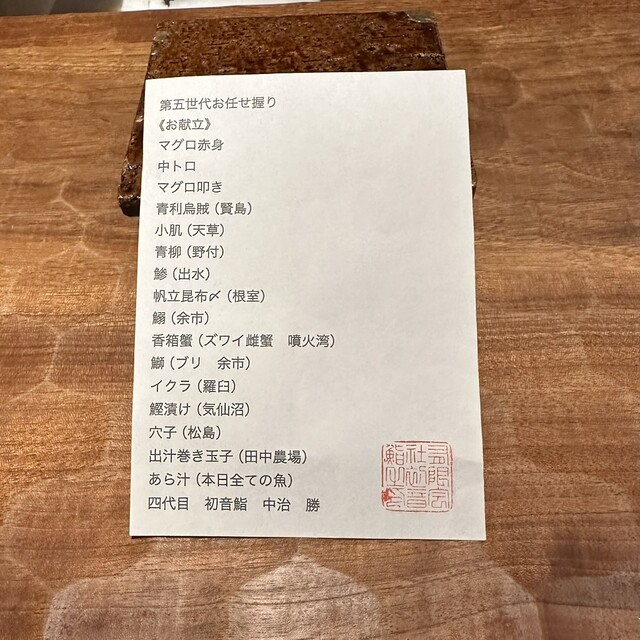 第五世代お任せ握り
《お献立》
マグロ赤身
中トロ
マグロ叩き
青利烏賊（賢島）
小肌（天草）
青柳（野付）
鯵（出水）
帆立昆布〆（根室）
鰯（余市）
香箱蟹（ズワイ雌蟹　噴火湾）
鰤（ブリ　余市）
イクラ（羅臼）
鰹漬け（気仙沼）
穴子（松島）
出汁巻き玉子（田中農場）
あら汁（本日全ての魚）
四代目　初音鮨　中治　勝